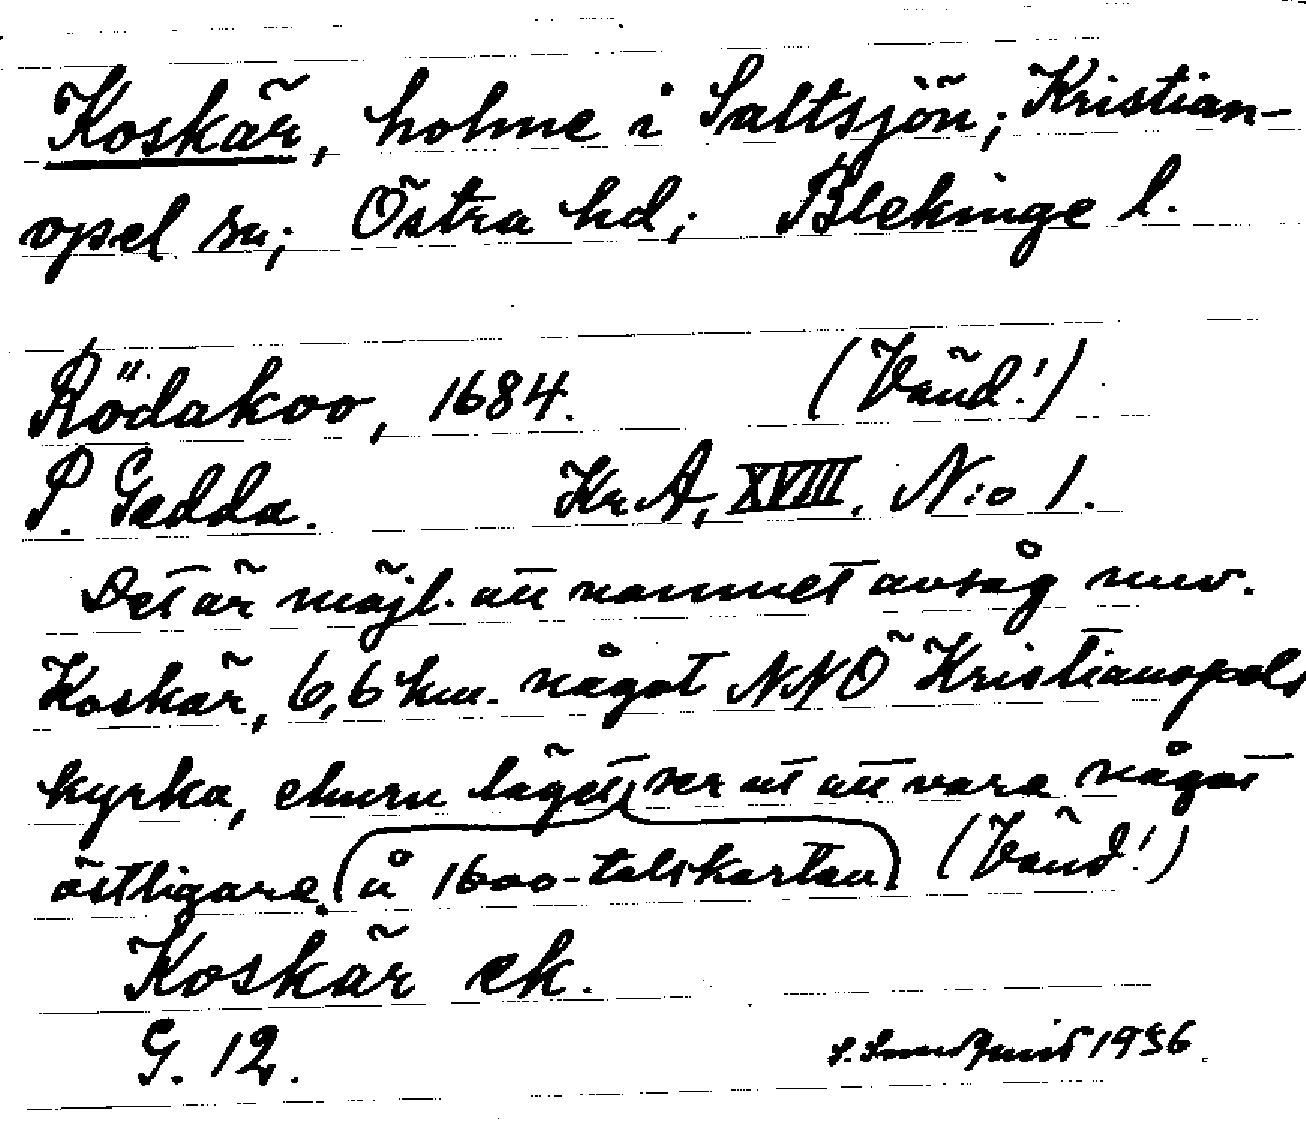 Koskär, holme i Saltsjön; Kristian-
opel sn; Östra hd; Blekinge l.
Rödakoo, 1684. (Vänd!)
P. Gedda. Kr. A, XVIII, N:o 1.
Det är möjl. att namnet avsåg nuv.
Koskär, 6,6 km. något NNÖ Kristianopels
kyrka, ehuru läget ser ut att vara något
östligare. (å 1600-talskartan) (Vänd!)
Koskär ek.
G. 12. 1936